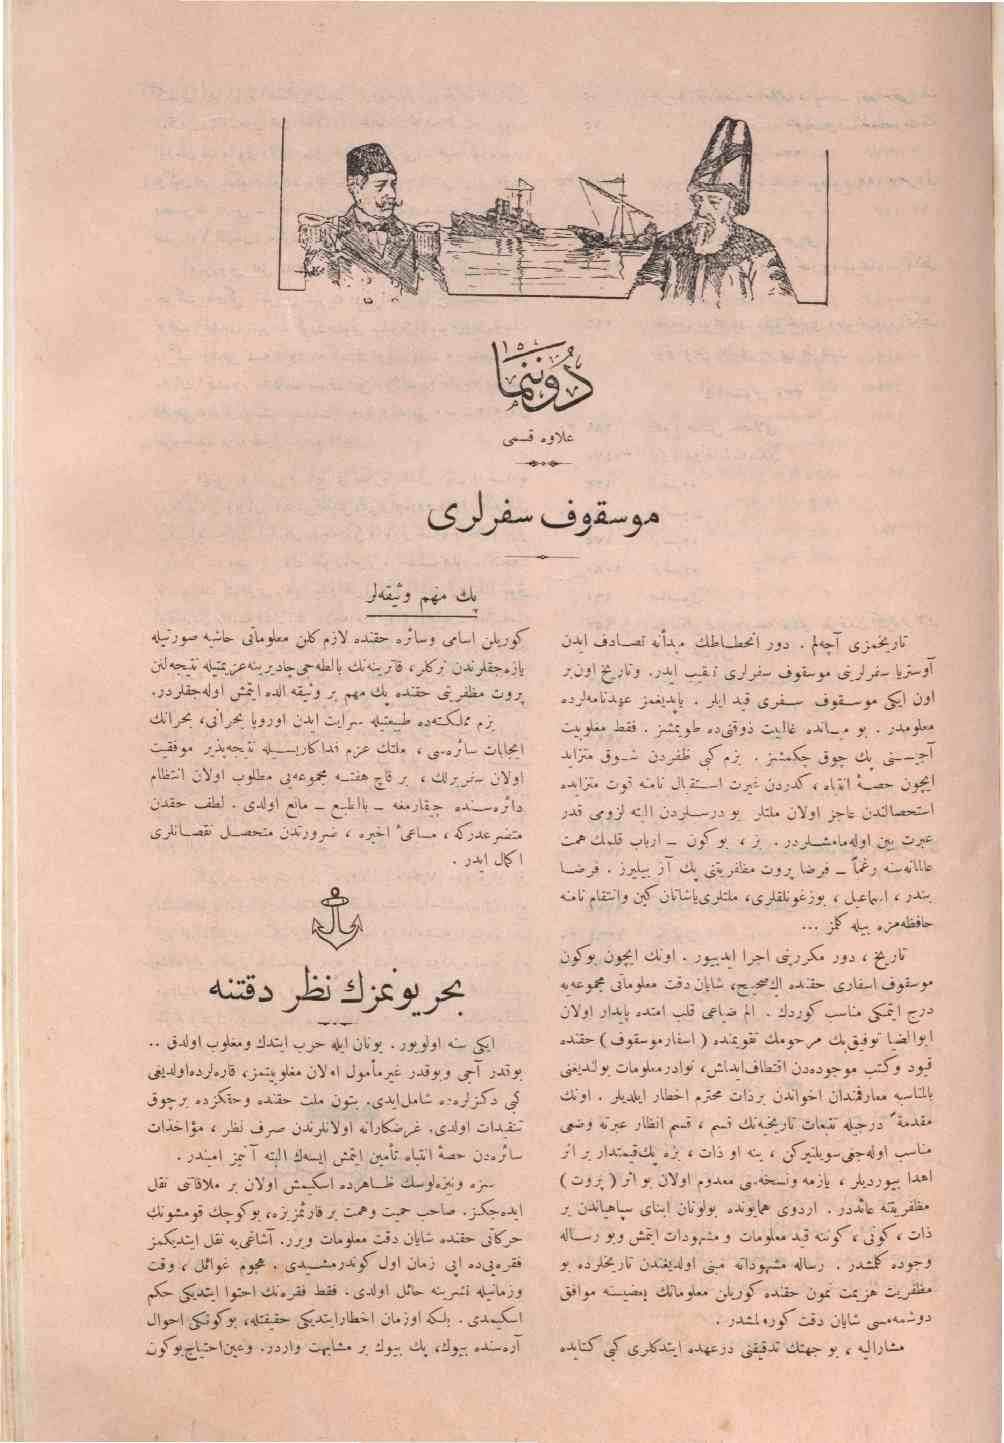 دوننما
علاوه قسمی
موسقوف سفرلری
تاریخمزی آچه‌لم . دور انحطاطك مبدأنه تصادف ایدن
آوستریا سفرلرینی موسقوف سفرلری تعقیب ایدر. وتاریخ اون بر
اون ایکی موسقوف سفری قید ایلر . یاپدیغمز عهدنامه‌لرده
معلومدر . بو میانده غالبیت ذوقنی‌ده طویمشز . فقط مغلوبیت
آجیسنی پك چوق چکمشز . بزم کبی ظفردن شوق متزاید
ایچون حصهٔ انتباه ، کدردن غیرت استقبال نامنه قوت متزایده
استحصالندن عاجز اولان ملتلر بو درسلردن البته لزومی قدر
عبرت بین اوله‌مامشلردر . بز ، بو کون ـ ارباب قلمك همت
عالمانه‌سنه رغماً ـ فرضا پروت مظفریتنی پك آز بیلیرز . فرضا
بندر ، اسماعیل ، بوزغونلقلری، ملتلری یاشاتان کین وانتقام نامنه
حافظه‌مزه بیله کلمز ...
تاریخ ، دور مکررینی اجرا ایدییور . اونك ایچون بوکون
موسقوف اسفاری حقنده اك صحیح، شایان دقت معلوماتی مجموعه‌یه
درج ایتمکی مناسب کوردك . الم ضیاعی قلب امتده پایدار اولان
ابوالضیا توفیق بك مرحومك تقویمنده ( اسفار موسقوف ) حقنده
قیود وکتب موجوده‌دن اقتطاف ایداش، نوادر معلومات بولندیغنی
بالمناسبه معارفمندان اخواندن بر ذات محترم اخطار ایلدیلر . اونك
مقدمهٔ درجیله تتبعات تاریخیه‌نك قسم ، قسم انظار عبرته وضعی
مناسب اوله‌جغی سویلنیرکن ، ینه او ذات ، بزه پك قیمتدار بر اثر
اهدا بیوردیلر ، یازمه ونسخه‌سی معدوم اولان بو اثر ( پروت )
مظفریتنه عائددر . اردوی همایونده بولونان ابنای سپاهیاندن بر
ذات ، کونی ، کوننه قید معلومات و مشهودات ایتمش وبو رساله
وجوده کلمشدر . رساله مشهوداته مبنی اولدیغندن تاریخلرده بو
مظفریت هزیمت نمون حقنده کوریلن معلوماتك یمضیسنه موافق
دوشمه‌مسی شایان دقت کورولمشدر .
مشارالیه ، بو جهتك تدقیقنی درعهده ایتدکلری کبی کتابده
پك مهم وثیقه‌لر
کوریلن اسامی وسائره حقنده لازم کلن معلوماتی حاشیه صورتیله
یازه‌جقلرندن ترکلر، قاترینه‌نك بالطه‌جی چادیرینه عزیمتیله نتیجه‌لنن
پروت مظفریتی حقنده پك مهم بر وثیقه الده ایتمش اوله‌جقلردر.
بزم مملکتده طبیعتیله سرایت ایدن اوروپا بحرانی، بحرانك
ایجابات سائره‌سی ، ملتك عزم فداکاریسیله نتیجه‌پذیر موفقیت
اولان سفربرلك ، بر قاچ هفته مجموعه‌یی مطلوب اولان انتظام
دائره‌سنده چیقارمغه ـ بالطبع ـ مانع اولدی . لطف حقدن
متضرعدرکه ، مساعیٔ اخیره ، ضرورتدن متحصل نقصانلری
اکمال ایدر .
بحریونمزك نظر دقتنه
ایکی سنه اولویور. یونان ایله حرب ایتدك ومغلوب اولدق ..
بوقدر آجی وبوقدر غیرمأمول اولان مغلوبیتمز، قاره‌لرده اولدیغی
کبی دکزلرده شامل ایدی. بتون ملت حقنده وحقکزده برچوق
تنقیدات اولدی. غرضکارانه اولانلرندن صرف نظر ، مؤاخذات
سائره‌دن حصهٔ انتباه تأمین ایتمش ایسه‌ك البته آتیمز امیندر .
سزه ونیزه‌لوسك ظاهرده اسکیمش اولان بر ملاقاتی نقل
ایده‌جکز. صاحب حمیت وهمت بر قارئمز بزه، بو کوچك قومشونك
حرکاتی حقنده شایان دقت معلومات ویرر. آشاغی‌یه نقل ایتدیکمز
فقره‌یی‌ده ایی زمان اول کوندرمشیدی . هجوم غوائل ، وقت
وزمانیله نشرینه حائل اولدی. فقط فقره‌نك احتوا ایتدیکی حکم
اسکیمدی . بلکه اوزمان اخطار ایتدیکی حقیقتله، بوکونکی احوال
آره‌سنده بیوك، پك بیوك بر مشابهت واردر. وعین احتیاج بوکون